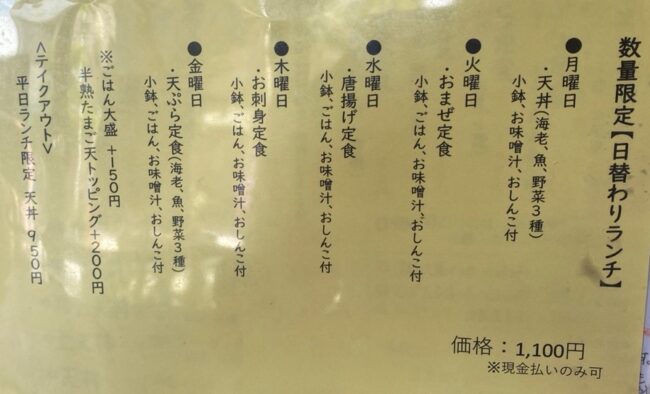 数量限定【日替わりランチ】
●月曜日
・天丼(海老、魚、野菜3種)
小鉢、お味噌汁、おしんこ付
●火曜日
・おまぜ定食
小鉢、ごはん、お味噌汁、おしんこ付
●水曜日
・唐揚げ定食
小鉢、ごはん、お味噌汁、おしんこ付
●木曜日
・お刺身定食
小鉢、ごはん、お味噌汁、おしんこ付
●金曜日
・天ぷら定食(海老、魚、野菜3種)
小鉢、ごはん、お味噌汁、おしんこ付
※ごはん大盛 +150円
半熟たまご天トッピング+200円
<テイクアウト>
平日ランチ限定 天丼 950円
価格：1,100円
※現金払いのみ可